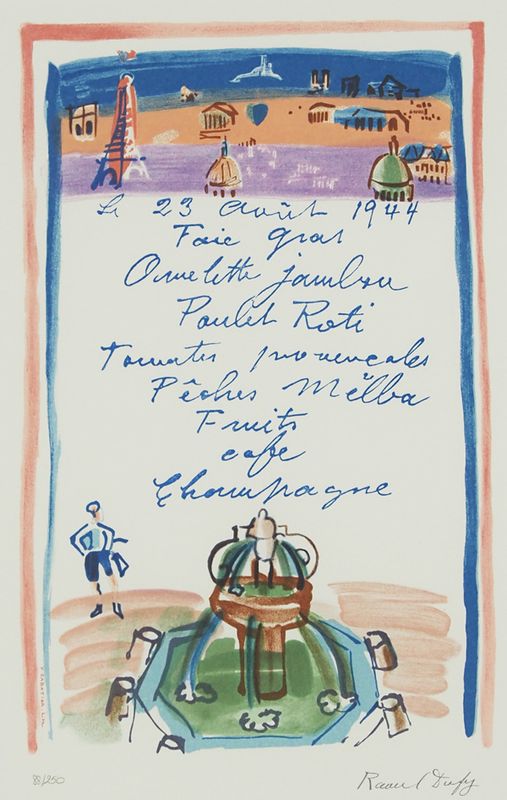 Le 23 Août 1944
Foie gras
Omelette jambon
Poulet Roti
Tomates provencales
Pêches Melba
Fruits
cafe
Champagne
/250
Raoul Dufy